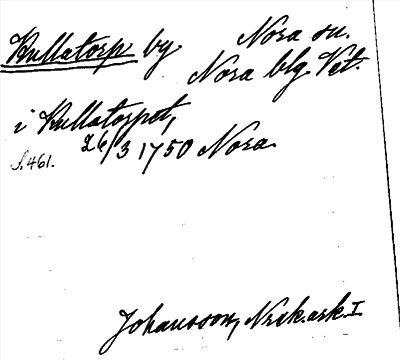 Kullatorp by Nora sn.
Nora blg Vet.
i Kullatorpet,
26/3 1750 Nora.
S. 461.
Johansson, Nrek.ark. I